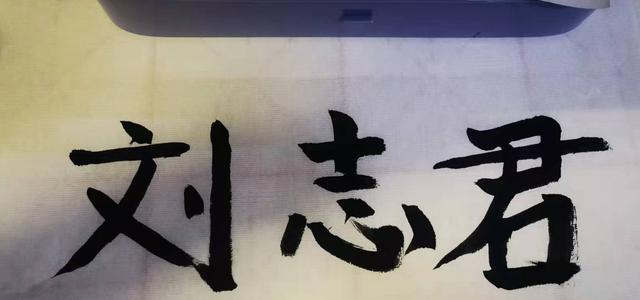 刘志君